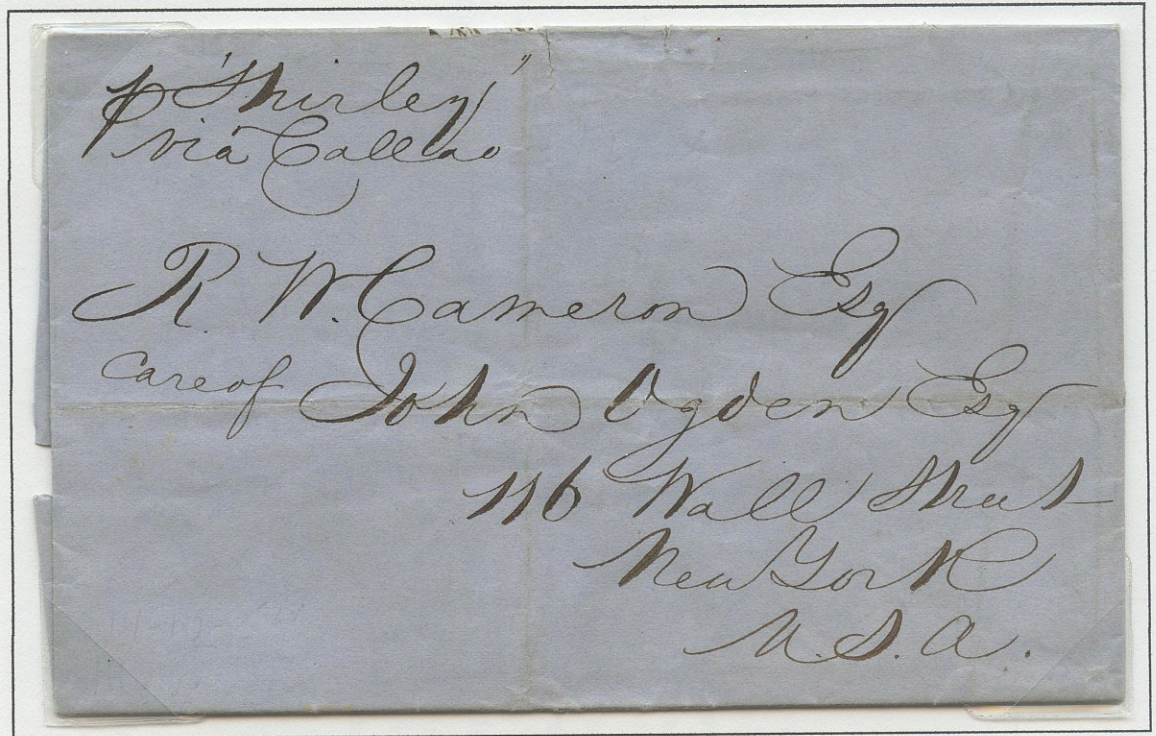 p "Shirley"
via Callao
R. W. Cameron Esq
Care of John Ogden Esq
116 Wall Street
New York
U.S.A.